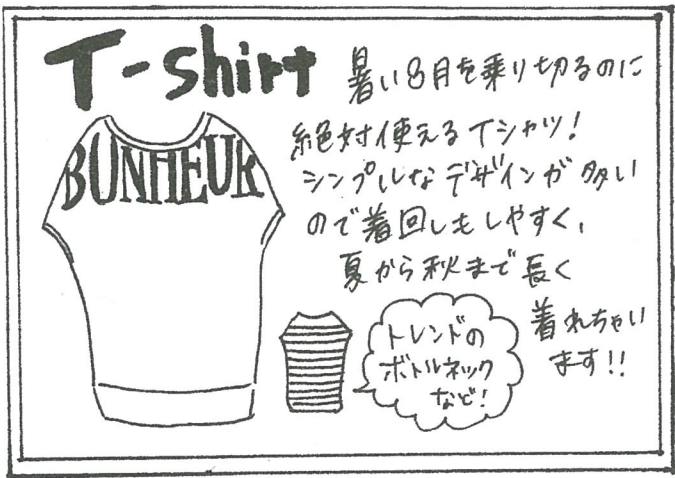 T-shirt
暑い8月を乗り切るのに
絶対使えるTシャツ!
シンプルなデザインが多い
ので着回しもしやすく、
夏から秋まで長く
着れちゃい
ます!!
BONHEUR
トレンドの
ボトルネック
など!